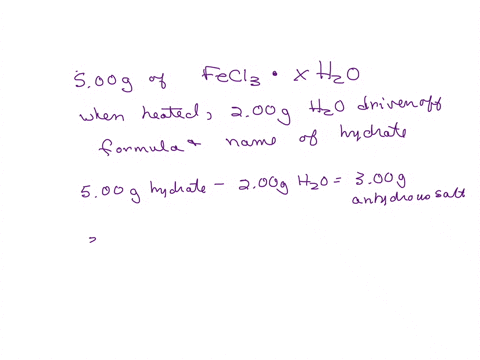 5.00g of FeCl3 • x H2O
when heated, 2.00g H2O driven off
formula & name of hydrate
5.00 g hydrate - 2.00g H2O = 3.00g
anhydrous salt